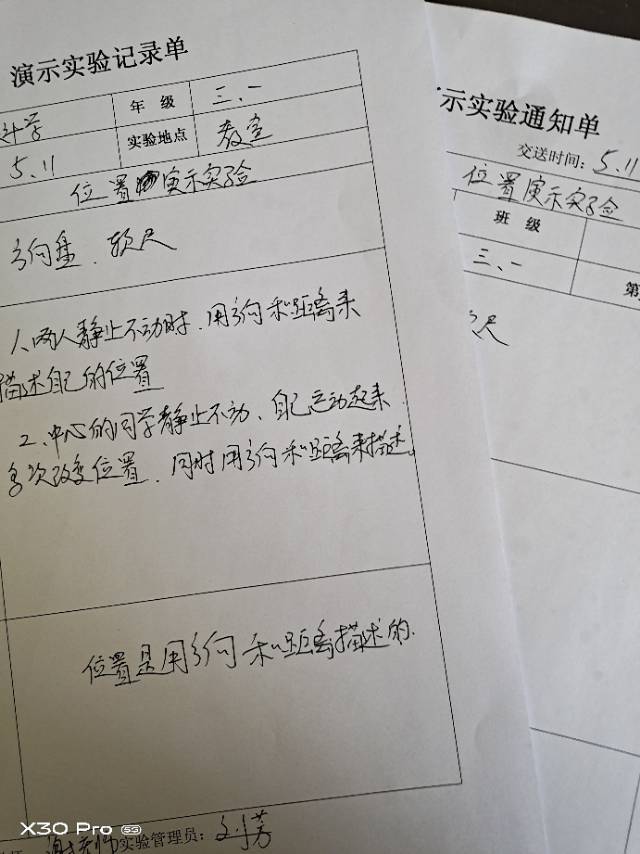 演示实验记录单
科学 年 级 三、一
5.11 实验地点 教室
位置演示实验
方向盘、软尺
1、两人静止不动时、用方向和距离来
描述自己的位置
2、中心的同学静止不动、自己运动起来
多次改变位置、同时用方向和距离来描述。
位置是用方向和距离描述的.
谢老师 实验管理员：刘芳
示实验通知单
交送时间：5.11
位置演示实验
班 级
三、一 第
尺
X30 Pro 5G